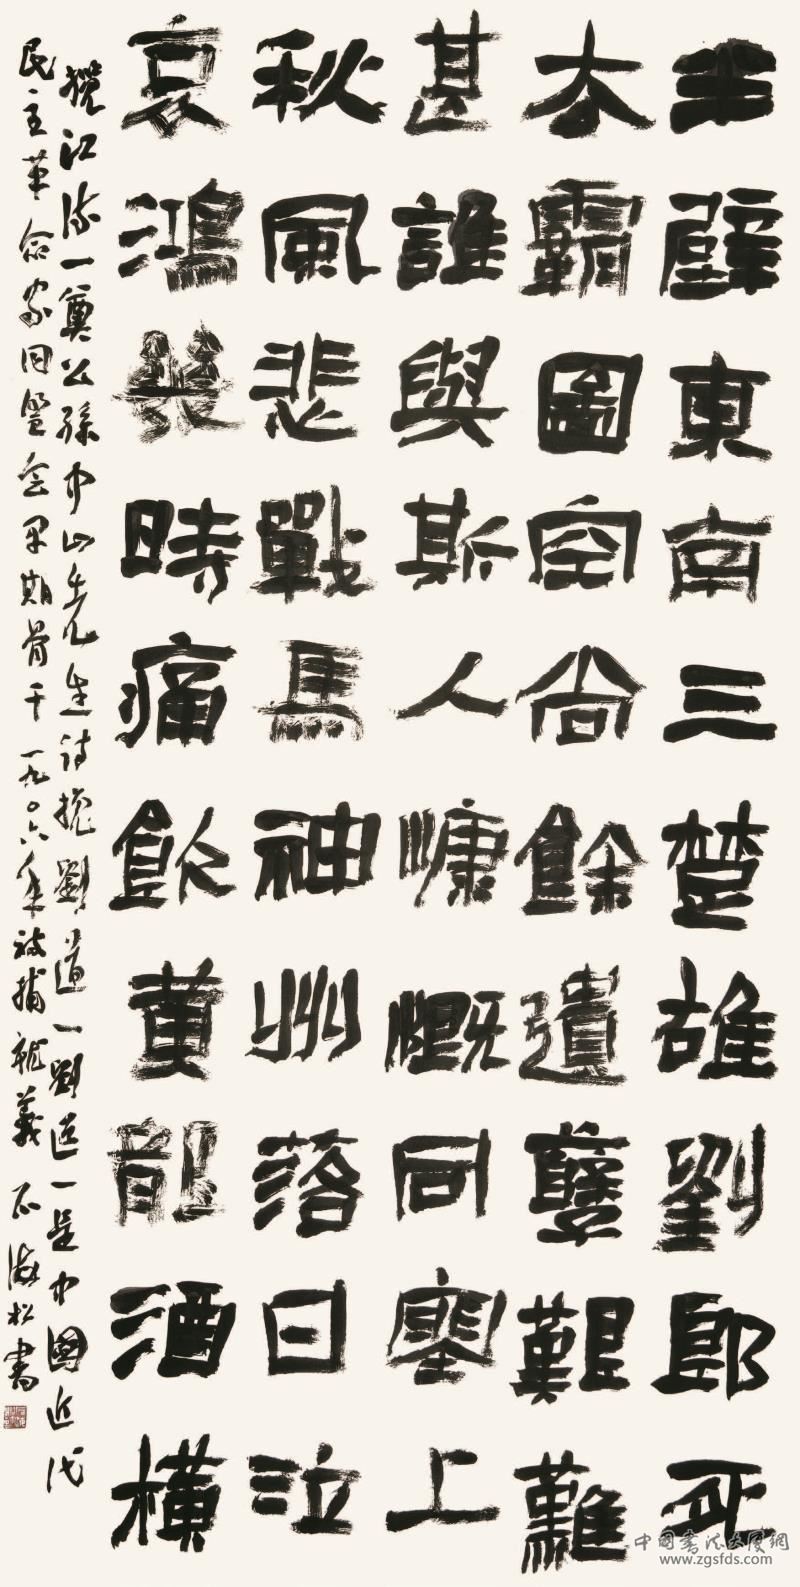 半壁東南三楚雄劉郎死
去霸圖空尚餘遺孽艱難
甚誰與斯人慷慨同塞上
秋風悲戰馬神州落日泣
哀鴻幾時痛飲黃龍酒橫
攬江流一奠公孫中山先生詩挽劉道一劉道一是中國近代
民主革命家同盟會早期骨干一九〇六年被捕就義 石海松書
中國書法大廈網
www.zgsfds.com